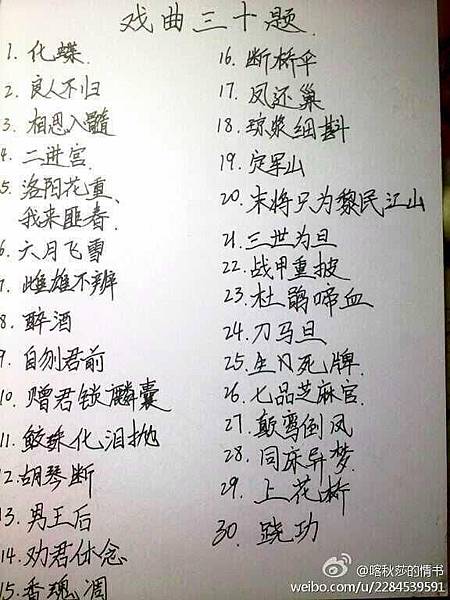 戏曲三十题
1. 化蝶
2. 良人不归
3. 相思入髓
4. 二进宫
5. 洛阳花重、
我来匪春、
6. 六月飞雪
7. 雌雄不辨
8. 醉酒
9. 自刎君前
10. 赠君锁麟囊
11. 鲛珠化泪抛
12. 胡琴断
13. 男王后
14. 劝君休念
15. 香魂凋
16. 断桥伞
17. 凤还巢
18. 琼浆细斟
19. 定军山
20. 末将只为黎民江山
21. 三世为旦
22. 战甲重披
23. 杜鹃啼血
24. 刀马旦
25. 生风死牌
26. 七品芝麻官
27. 颠鸾倒凤
28. 同床异梦
29. 上花桥
30. 跷功
@喀秋莎的情书
weibo.com/u/2284539591